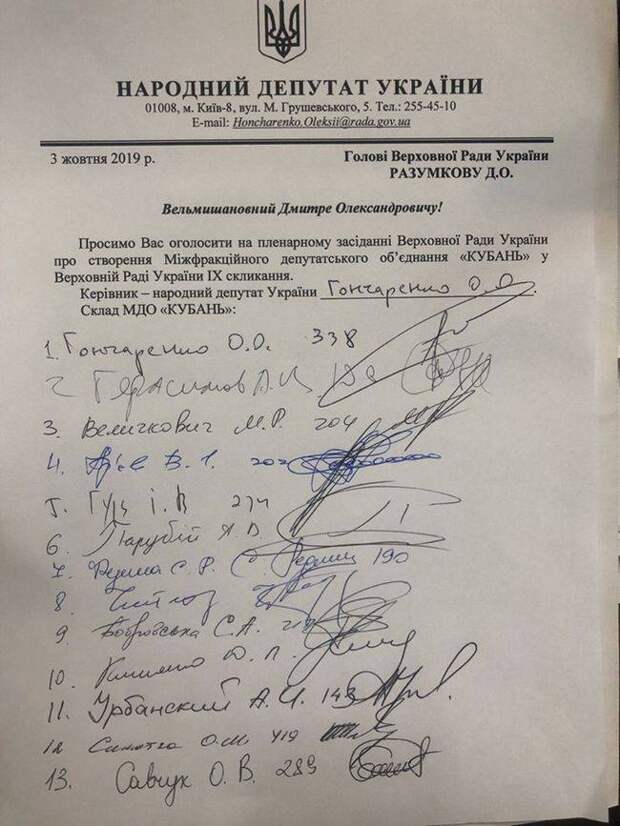 НАРОДНИЙ ДЕПУТАТ УКРАЇНИ
01008, м. Київ-8, вул. М. Грушевського, 5. Тел.: 255-45-10
E-mail: Honcharenko.Oleksii@rada.gov.ua
3 жовтня 2019 р.
Голові Верховної Ради України
РАЗУМКОВУ Д.О.
Вельмишановний Дмитре Олександровичу!
Просимо Вас оголосити на пленарному засіданні Верховної Ради України
про створення Міжфракційного депутатського об’єднання «КУБАНЬ» у
Верховній Раді України ІХ скликання.
Керівник – народний депутат України Гончаренко О.О.
Склад МДО «КУБАНЬ»:
1. Гончаренко О.О. 338
2. Герасимов А.
3. Величкович М.Р. 204
4. В. І.
5. Гузь І. В 274
6. Парубій А. В.
7. С. Р. 190
8.
9. Бобровська С.А.
10. Клименко Ю. Л.
11. Урбанский А.И. 143
12 О.М. 419
13. Савчук О. В. 289